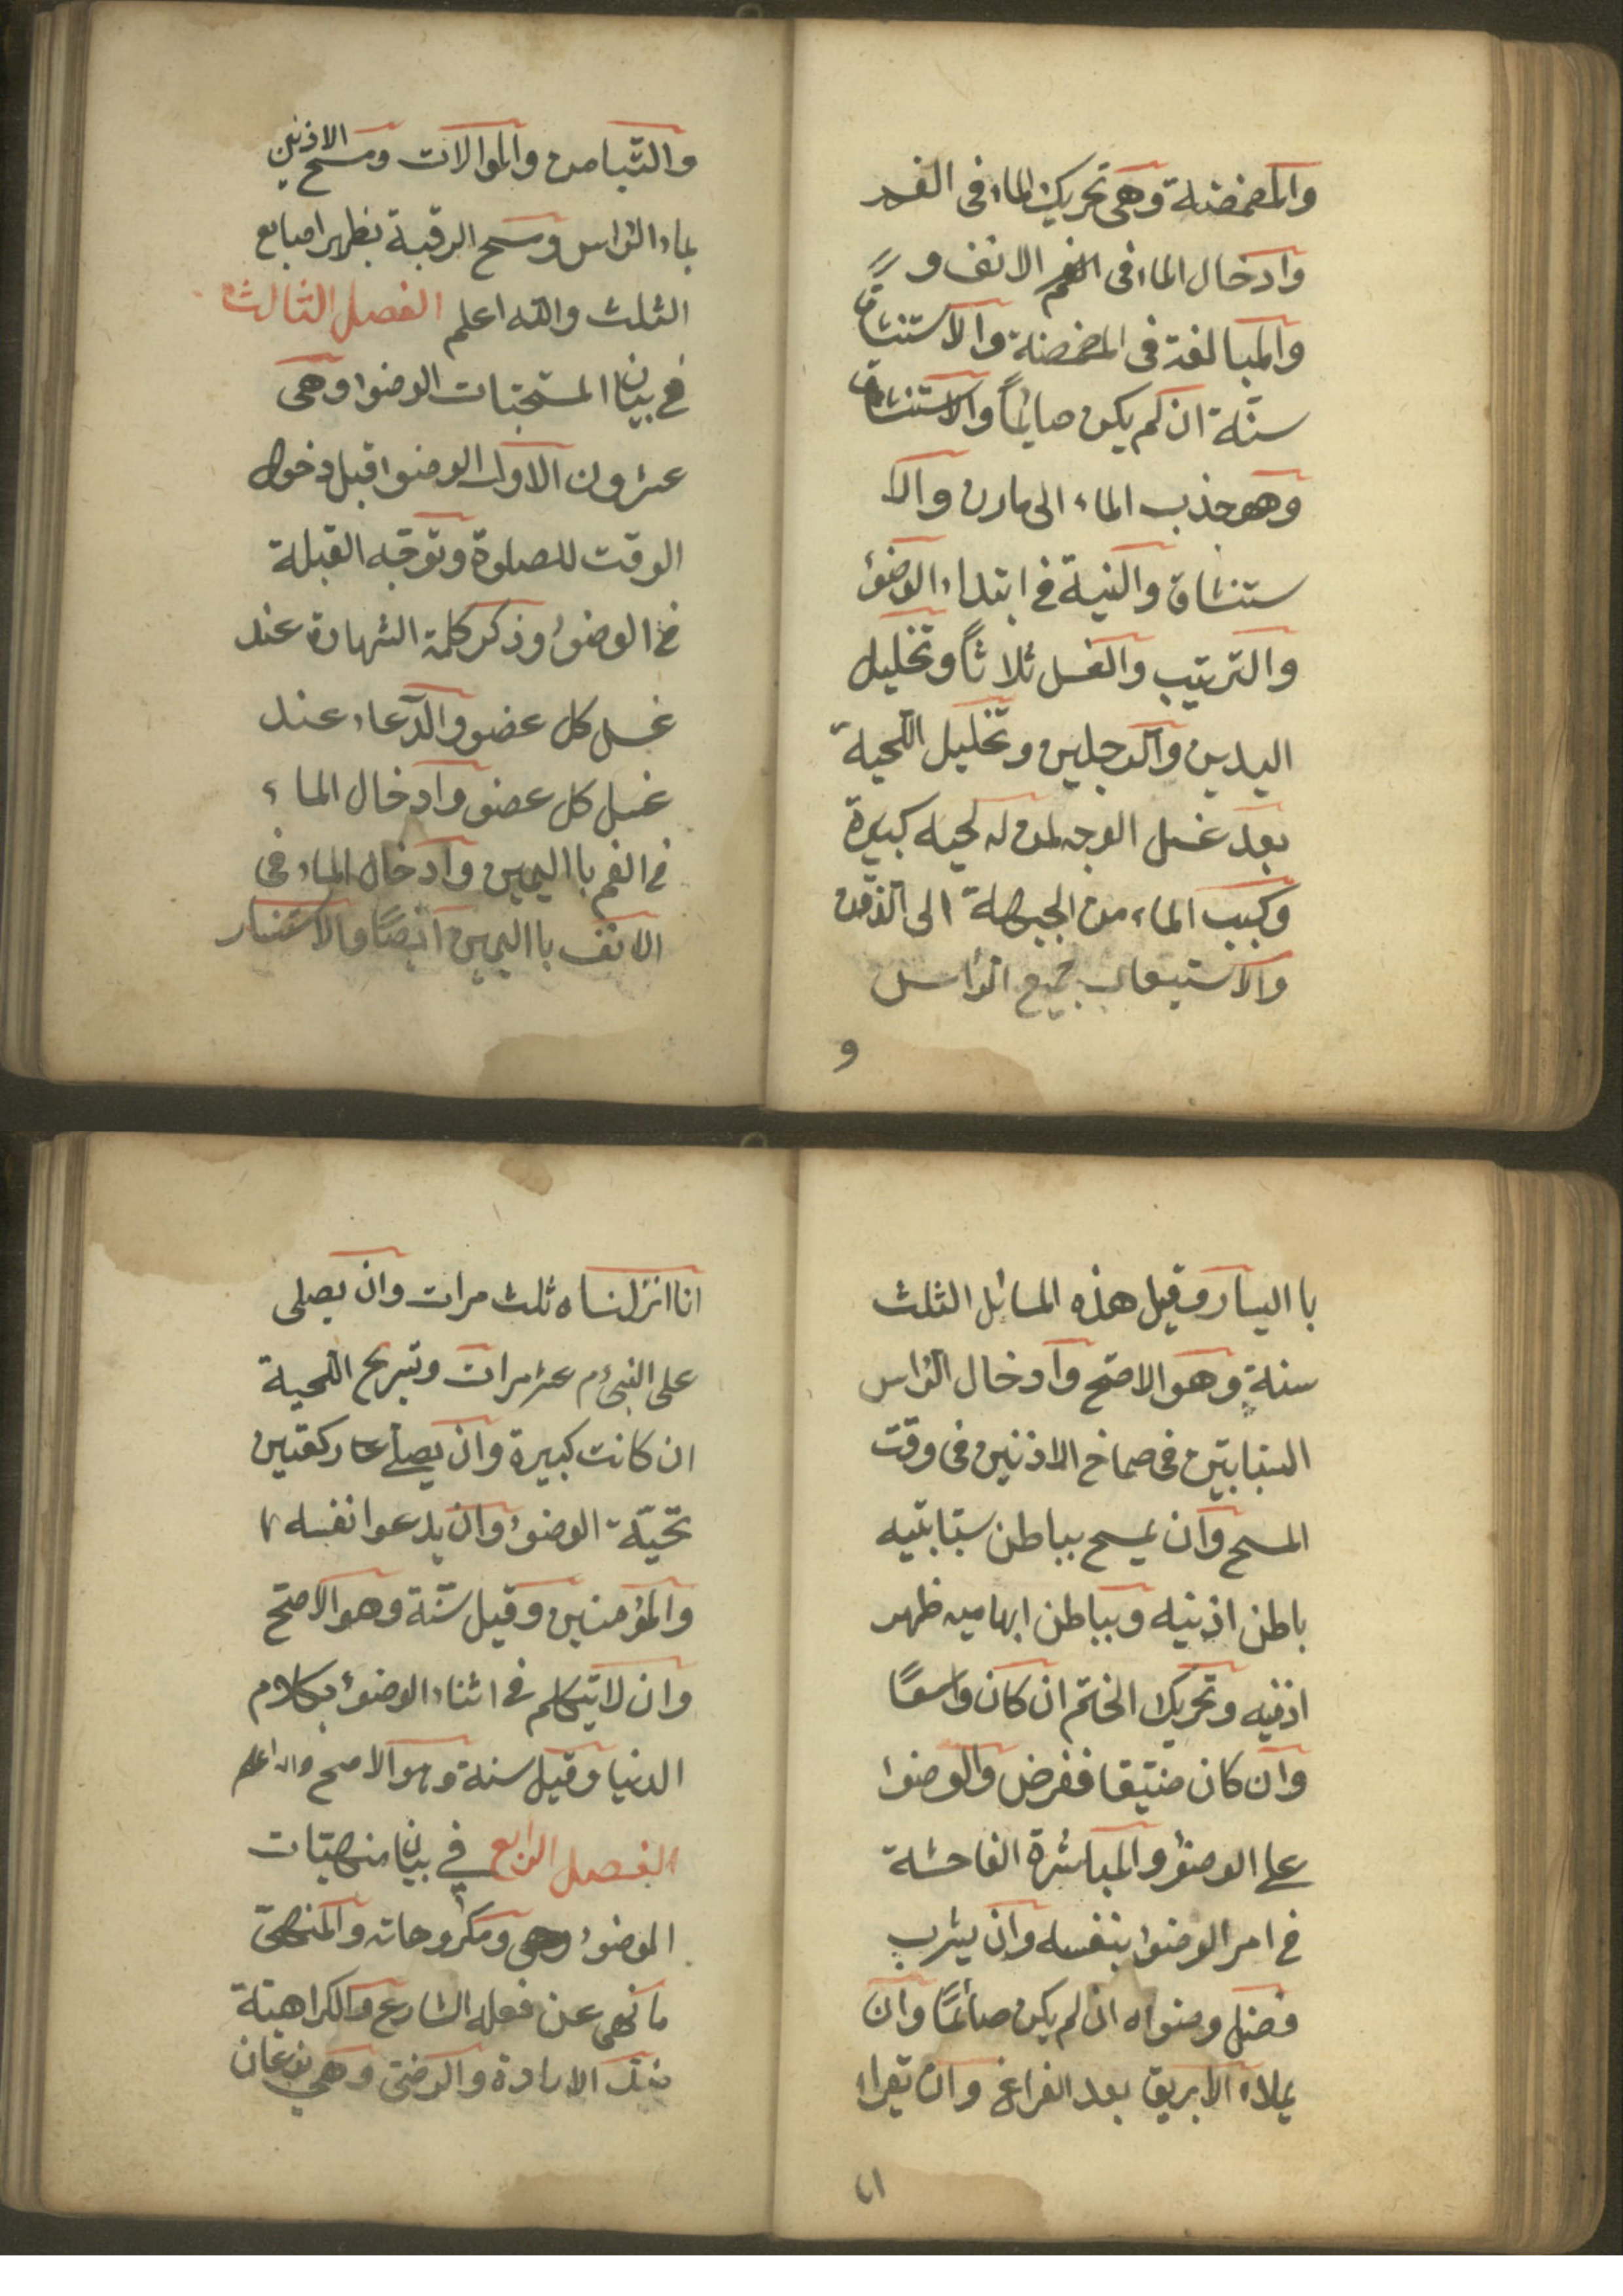 والمضمضة وهى تحريك الماء فى الفم
وادخال الماء فى الفم الانف و
والمبالغة فى المضمضة والاستنشاق
سنّة ان لم يكن صايمًا والاستنشاق
وهو جذب الماء الى مارن والا
ستنشاق والنية فى ابتداء الوضوء
والترتيب والغسل ثلاثاً وتخليل
اليدين والرجلين وتخليل اللحية
بعد غسل الوجه لمن له لحيه كبيرة
وكبب الماء من الجبهة الى الذقن
والاستيعاب جميع الرأس
و
والتيامن والموالات ومسح الاذنين
بماء الراس ومسح الرقبة بظهر اصابع
الثلث والله اعلم الفصل الثالث
فى بيان المستحبّات الوضوا وهى
عشرون الاول الوضوا قبل دخول
الوقت للصلوة وتوجّه القبلة
فى الوضوء وذكر كلمة الشهادة عند
غسل كل عضو والدّعاء عند
غسل كل عضو وادخال الماء
فى الفم بااليمين وادخال الماء فى
الانف بااليمين ايضًا والاستنسار
بااليسار وقيل هذه المسائل الثلث
سنة وهو الاصح وادخال الراس
السبابتين فى صماخ الاذنين فى وقت
المسح وان يمسح بباطن سبّابتيه
باطن اذنيه وبباطن ابهاميه ظهر
اذنيه وتحريك الخاتم ان كان واسعًا
وان كان ضيّقا ففرض والوضوا
على الوضوء والمباشرة الفاحشة
فى امر الوضوا بنفسه وان يشرب
فضل وضواه ان لم يكن صائمًا وان
يملاء الابريق بعد الفراغ وان تقراء
ا‌نا
انا انزلناه ثلث مرات وان يصلى
على النبى م عشر مرات وتسريح اللحية
ان كانت كبيرة وان يصلّے ركعتين
تحيّة الوضوء وان يدعوا نفسه
والمؤمنين وقيل سنّة وهو الاصحّ
وان لا يتكلم فى اثناء الوضوء بكلام
الدنيا وقيل سنة وهو الاصح والله اعلم
الفصل الرابع فى بيان منهيّات
الوضوء وهى ومكروهاته والمنهىّ
ما نهى عن فعله الشارع والكراهيّة
ضدّ الارادة والرضىّ وهى نوعان